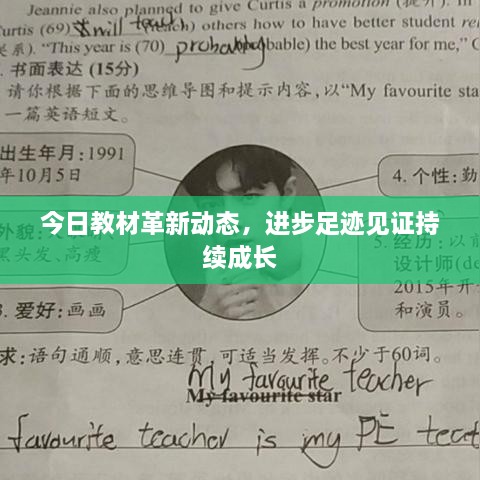 Jeannie also planned to give Curtis a promotion (提升). In
Curtis (69) will teach (teach) others how to have better student rel
关系). "This year is (70) probably (probable) the best year for me," C
. 书面表达 (15分)
请你根据下面的思维导图和提示内容,以“My favourite star
一篇英语短文。
出生年月:1991
年10月5日
4. 个性:勤
今日教材革新动态，进步足迹见证持
续成长
外貌:
黑头发、高瘦
5. 经历:以前
设计师(de
2015年开
和演员。
3. 爱好:画画
求:语句通顺,意思连贯,可适当发挥。不少于60词。
My favourite teacher
My favourite star
favourite teacher is my PE teac